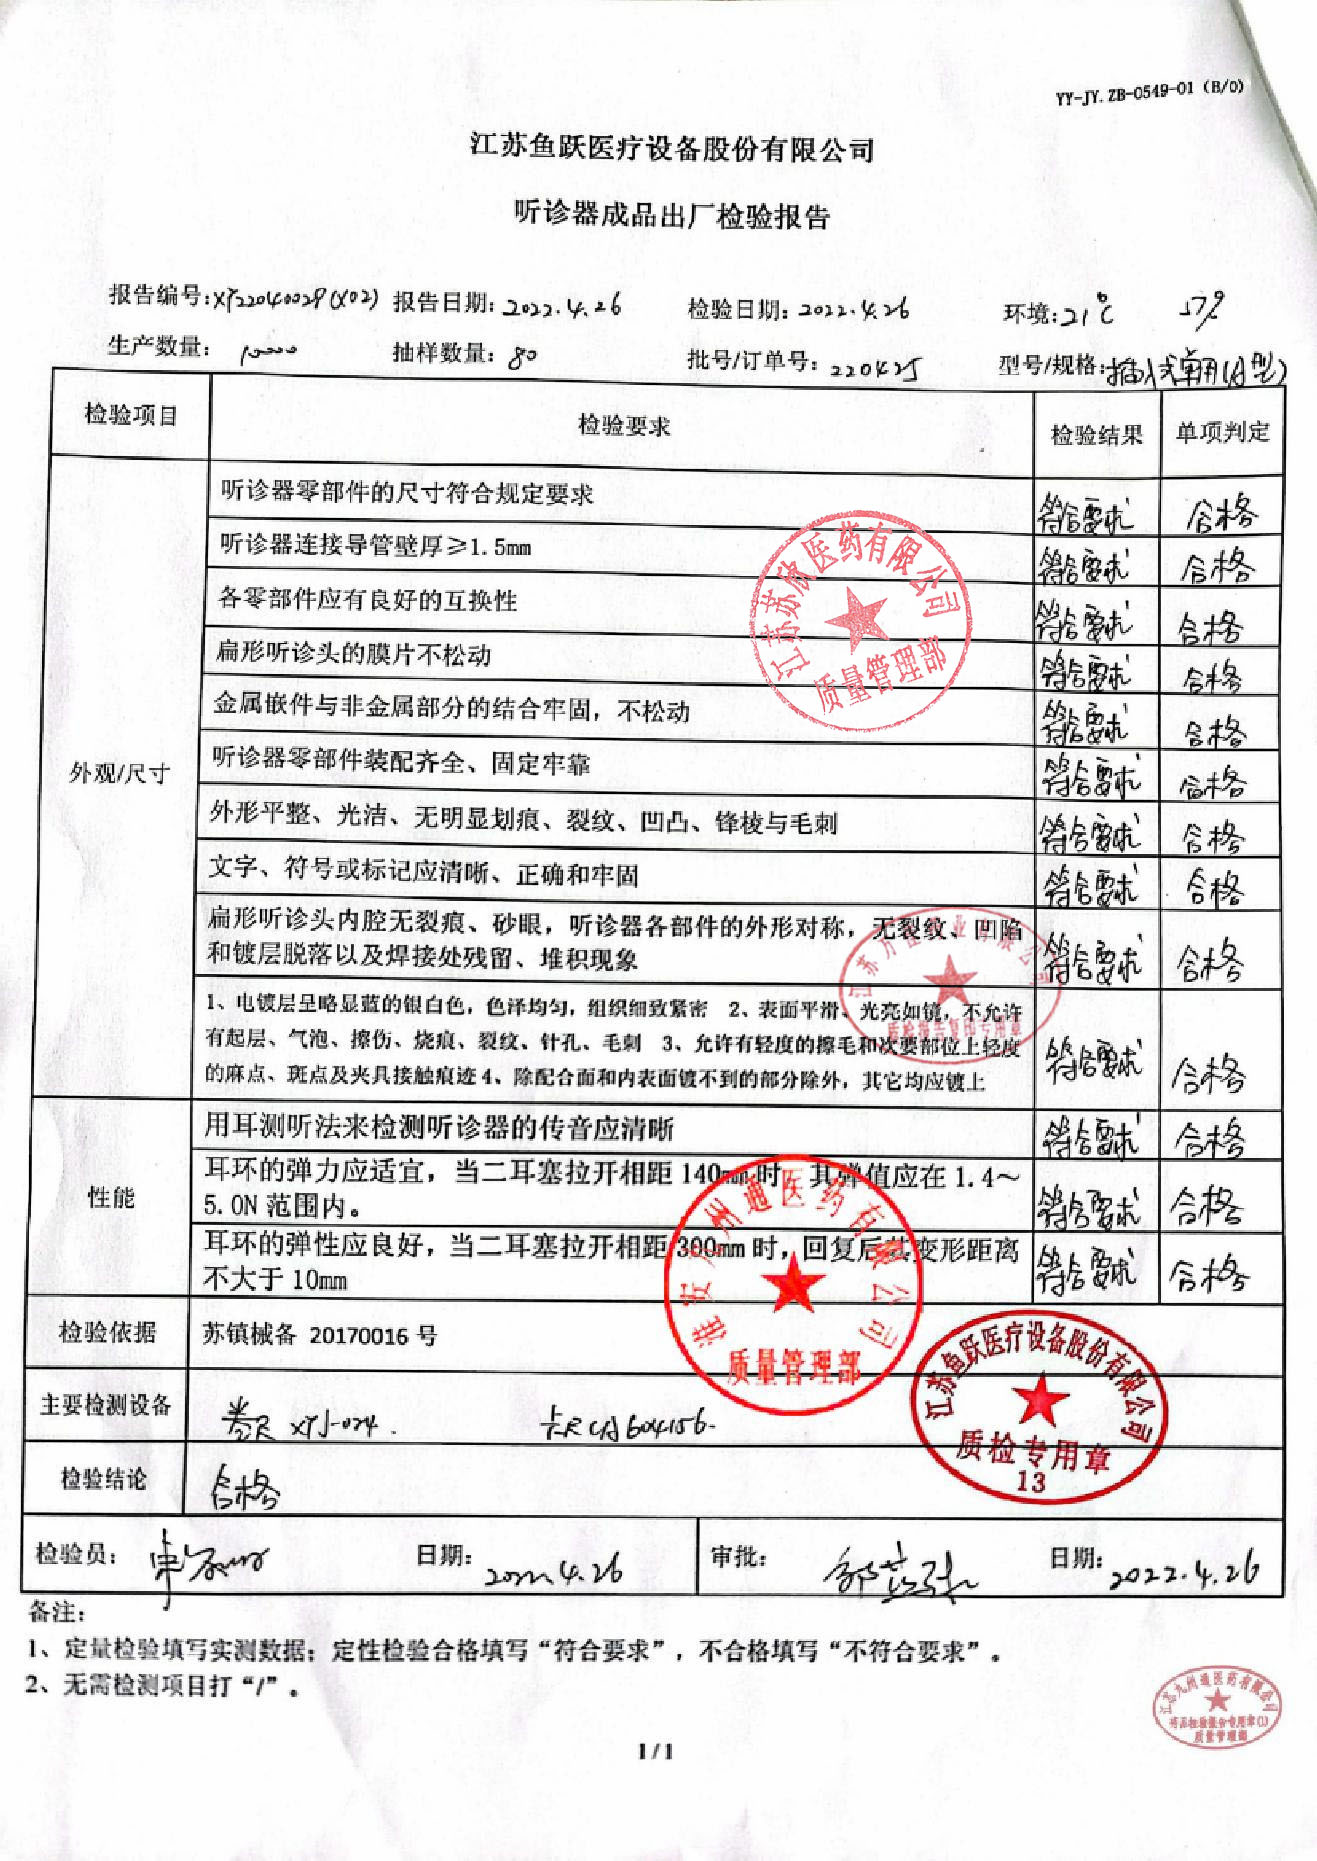 YY-JY.ZB-0549-01 (B/0)
江苏鱼跃医疗设备股份有限公司
听诊器成品出厂检验报告
报告编号: 报告日期: 2022.4.26 检验日期: 2022.4.26 环境: 21℃ 57%
生产数量: 10000 抽样数量: 80 批号/订单号: 220425 型号/规格: 插入式单用(A型)
检验项目 检验要求 检验结果 单项判定
外观/尺寸
听诊器零部件的尺寸符合规定要求 符合要求 合格
听诊器连接导管壁厚≥1.5mm 符合要求 合格
各零部件应有良好的互换性 符合要求 合格
扁形听诊头的膜片不松动 符合要求 合格
金属嵌件与非金属部分的结合牢固，不松动 符合要求 合格
听诊器零部件装配齐全、固定牢靠 符合要求 合格
外形平整、光洁、无明显划痕、裂纹、凹凸、锋棱与毛刺 符合要求 合格
文字、符号或标记应清晰、正确和牢固 符合要求 合格
扁形听诊头内腔无裂痕、砂眼，听诊器各部件的外形对称，无裂纹、凹陷
和镀层脱落以及焊接处残留、堆积现象 符合要求 合格
1、电镀层呈略显蓝的银白色，色泽均匀，组织细致紧密 2、表面平滑、光亮如镜，不允许
有起层、气泡、擦伤、烧痕、裂纹、针孔、毛刺 3、允许有轻度的擦毛和次要部位上轻度
的麻点、斑点及夹具接触痕迹4、除配合面和内表面镀不到的部分除外，其它均应镀上 符合要求 合格
性能
用耳测听法来检测听诊器的传音应清晰 符合要求 合格
耳环的弹力应适宜，当二耳塞拉开相距140mm时，其弹值应在1.4～
5.0N范围内。 符合要求 合格
耳环的弹性应良好，当二耳塞拉开相距300mm时，回复后其变形距离
不大于10mm 符合要求 合格
检验依据 苏镇械备 20170016 号
主要检测设备 卷尺 XTJ-024. 卡尺 CA604156.
检验结论 合格
检验员: 日期: 2022.4.26 审批: 日期: 2022.4.26
备注:
1、定量检验填写实测数据；定性检验合格填写“符合要求”，不合格填写“不符合要求”。
2、无需检测项目打“/”。
1/1
江苏苏欣医药有限公司
质量管理部
质检报告复印专用章
淮安九州通医药有限公司
质量管理部
江苏鱼跃医疗设备股份有限公司
质检专用章
13
江苏九州通医药有限公司
药品检验报告专用章(1)
质量管理部